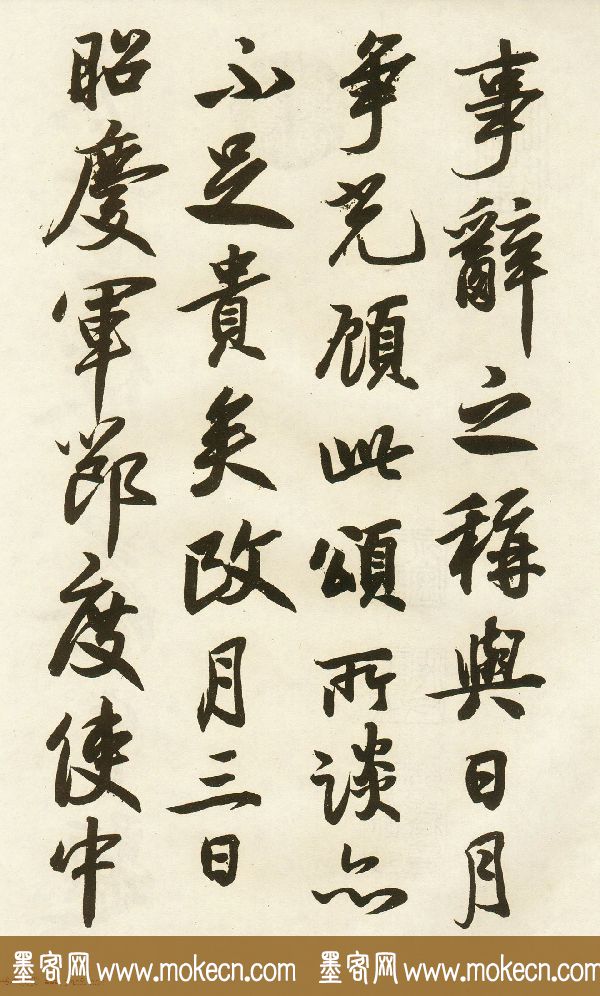 事辭之稱與日月
爭光顧此頌所談亦
不足貴矣改月三日
昭慶軍節度使中
墨客网 www.mokecn.com 墨客网 www.mokecn.com